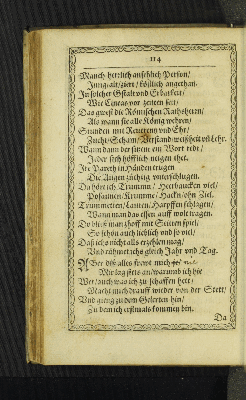 114
Manch herrlich ansehlich Person/
Jung/alt/zier/köstlich angethan.
In solcher Gstalt vnd Erbarkeit/
Wie Cineas vor zeiten seit/
Das gwest die Römischen Rathsherrn/
Als wann sie alle König weren/
Stunden mit Reuerenz vnd Ehr/
Zucht/Scham/Verstand/weißheit vñ Lehr.
Wann dann der sirem ein Wort redt/
Jeder sich höfflich neigen thet.
Ihr Pareth in Händen trugen
Die Augen züchtig vnterschlugen.
Da hört ich Trumme/Heerbaucken viel/
Posaunen/Krumme/Zincken ohn Ziel.
Trummetten/Lauten/Harpffen schlagen/
Wann man das essen auff wolt tragen.
Do bließ man thoff mit Seitten spiel/
Sie schön auch lieblich vnd so viel/
Daß ichs nicht alls erzehlen mag/
Vnd rühmet ichs gleich Jahr vnd Tag.
Aber diß alles frewt mich nit
Mir lag stets an/warumb ich hie
Wer/auch was ich zu schaffen hett/
Macht mich drauff wieder von der Stett/
Vnd gieng zu dem Gelerten hin/
Zu dem ich erstmals kommen bin.
Da